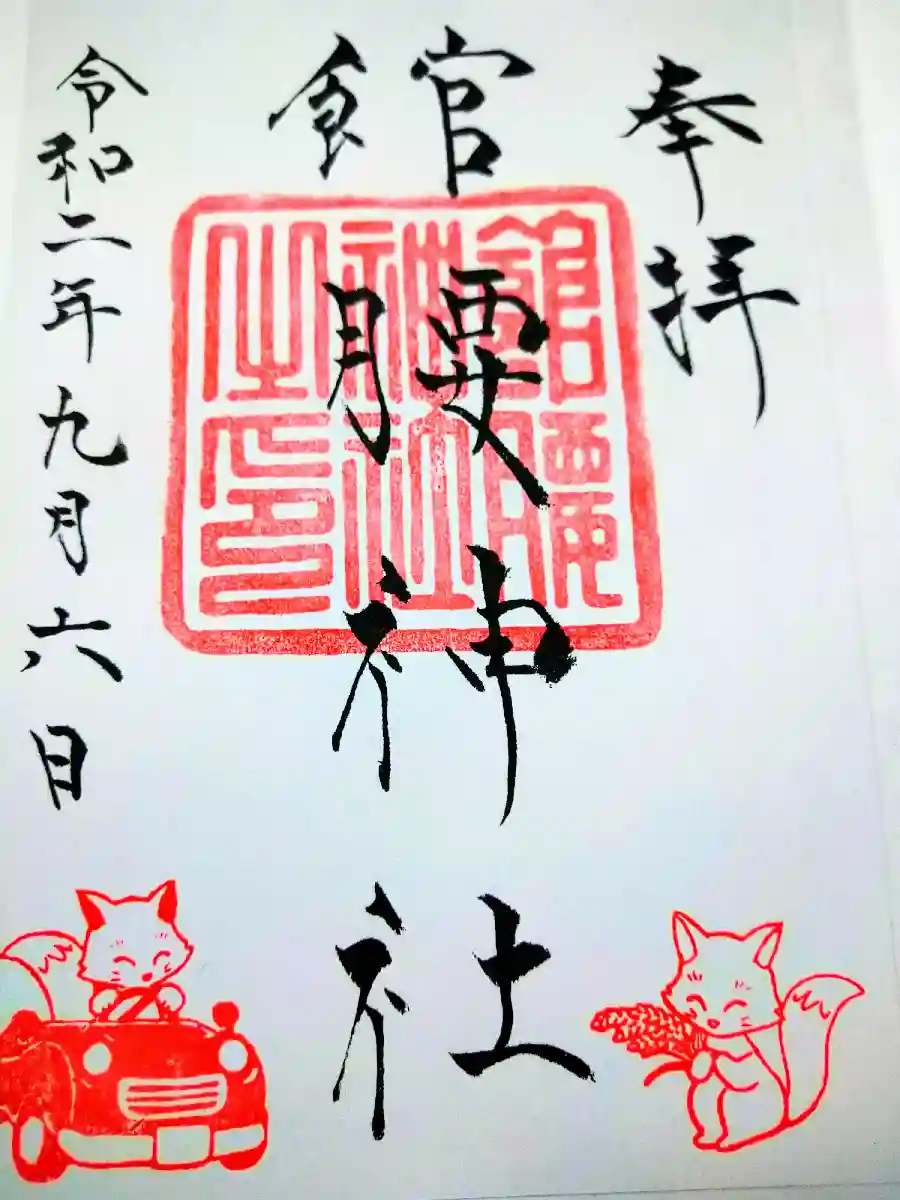 奉拝
館腰神社
館腰
神社
之印
令和二年九月六日